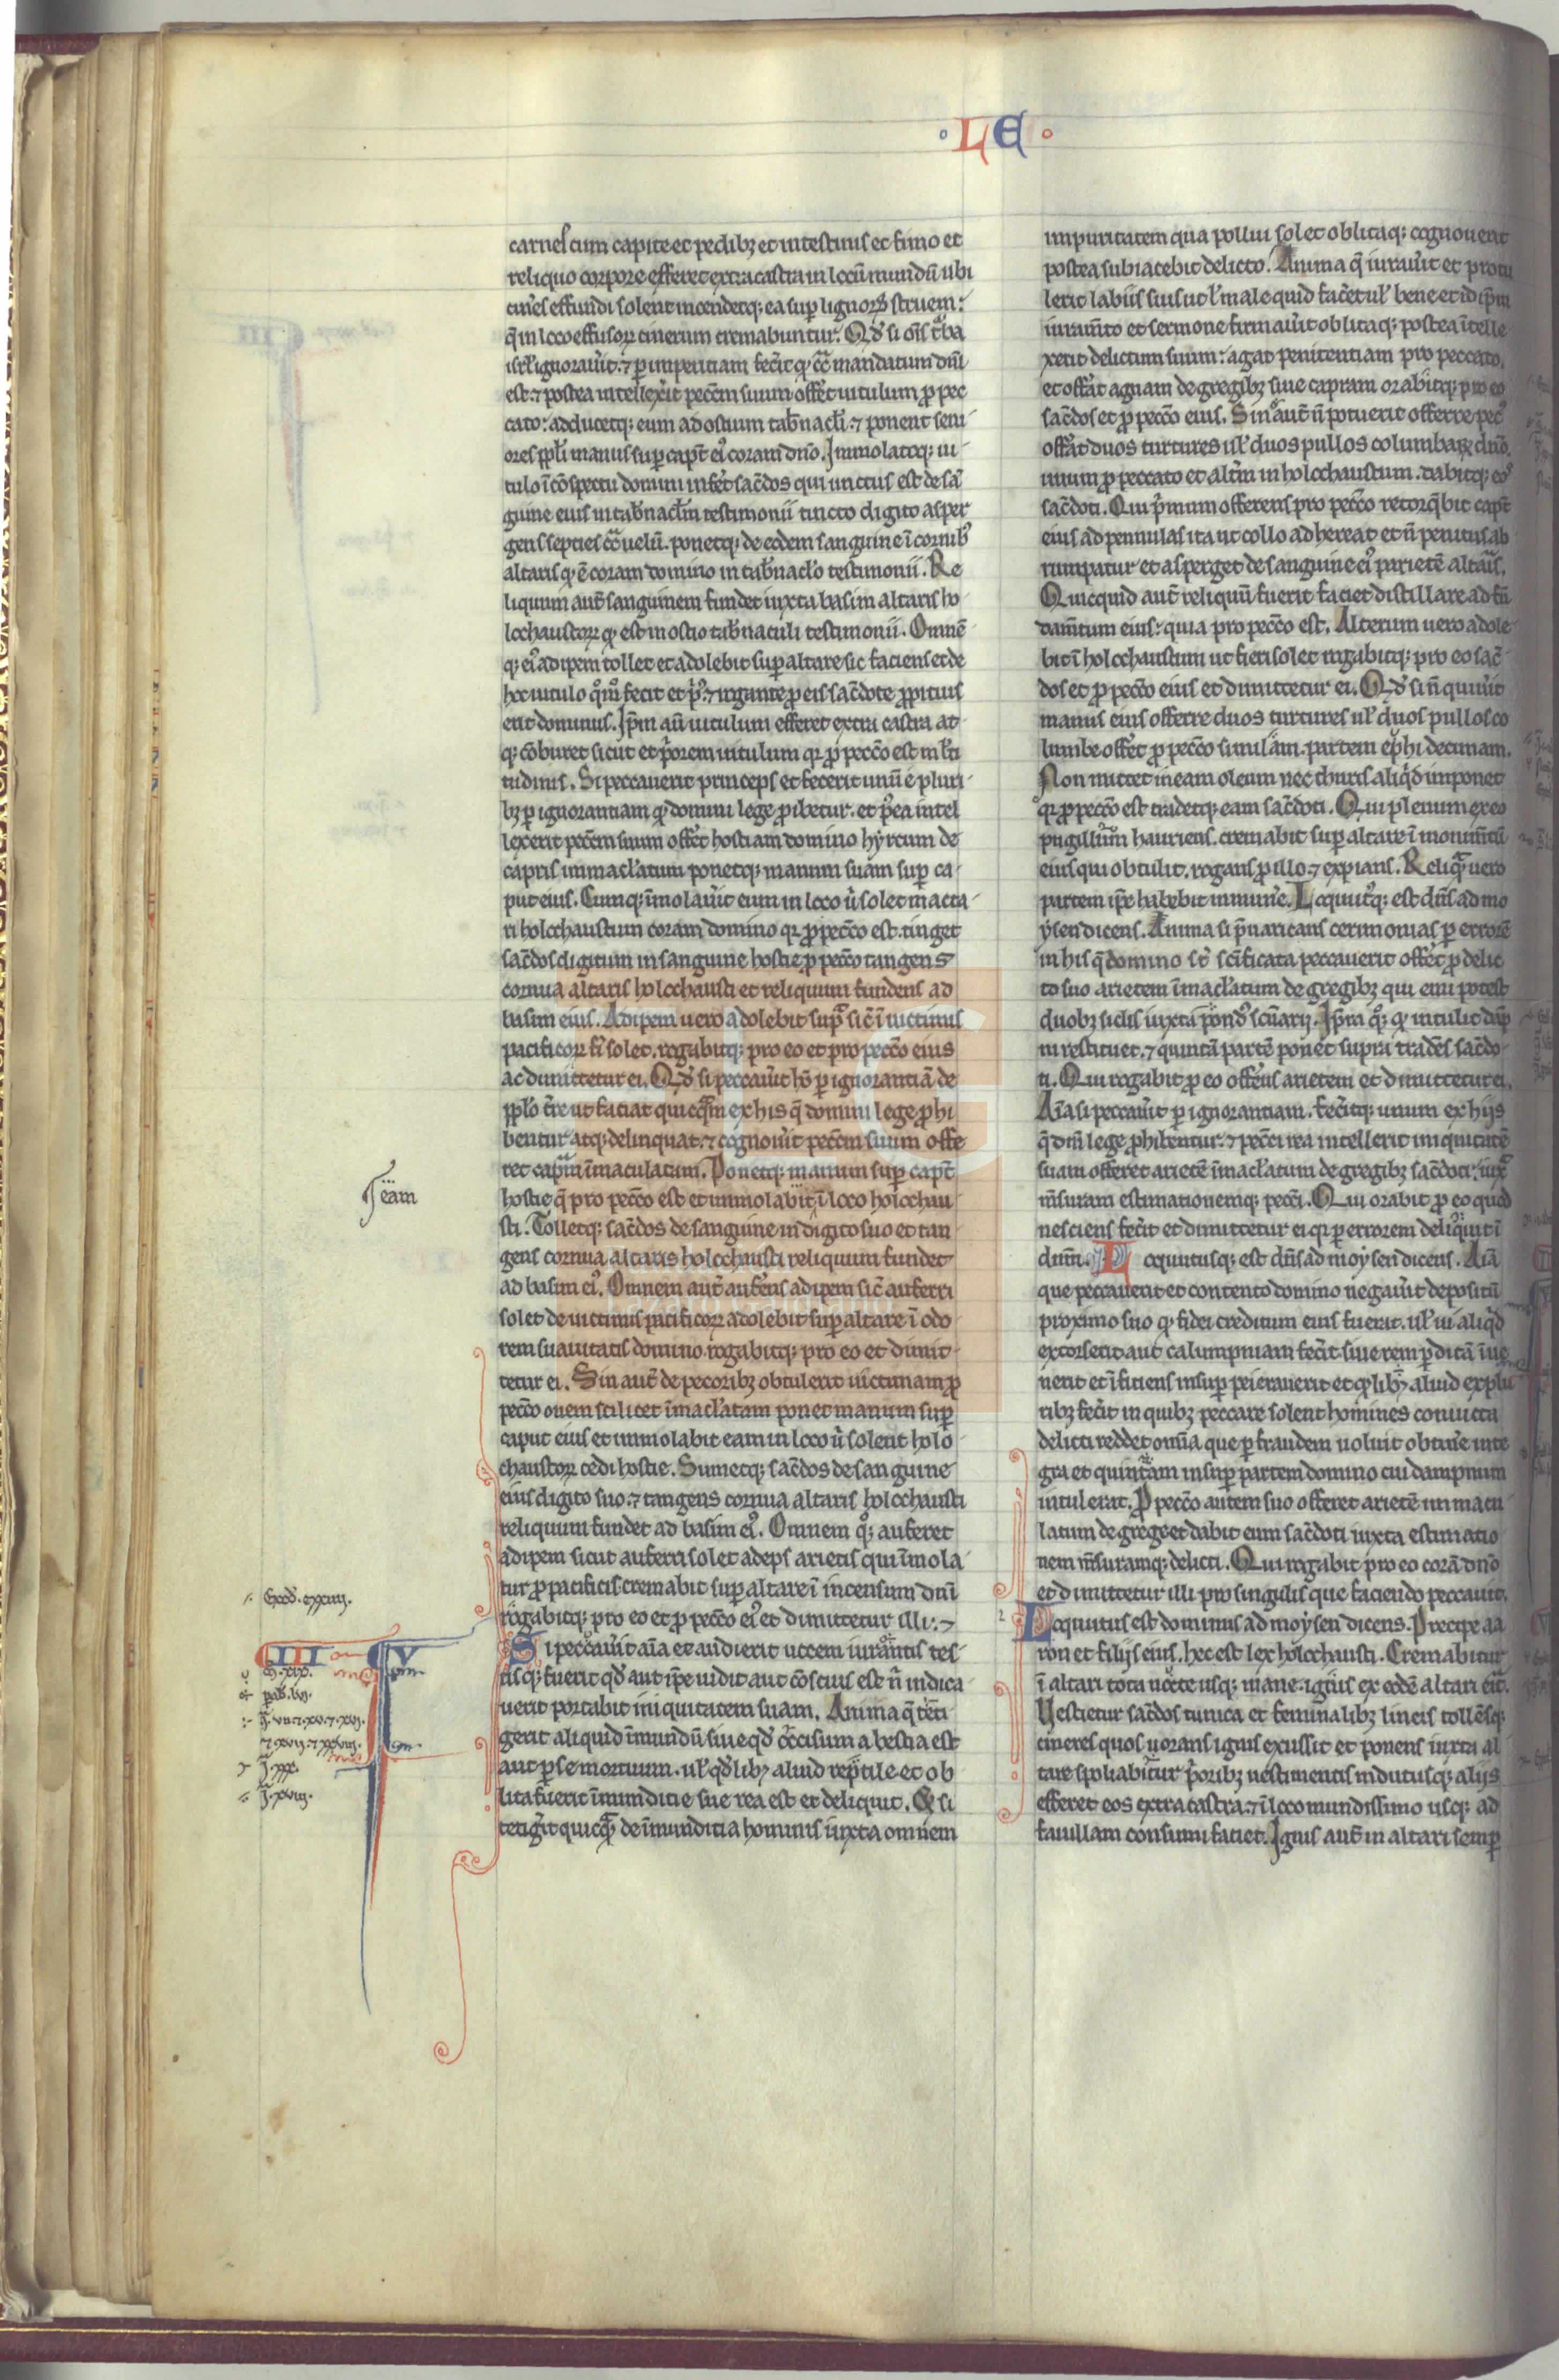 LE
carnes cum capite et pedibꝫ et intestinis et fimo et
reliquo corpore efferet extra castra in locū mundū ubi
cin̄es effundi solent incendetqꝫ ea sup̱ lignoꝝ struem:
q̄ in loco effusoꝝ cinerum cremabuntur. Qd̓ si om̄s t̓ba
isrl̓ ignorau̓it ⁊ ꝑ imperitiam fec̓it qͦ cͣ mandatum dn̄i
est ⁊ postea intellex̓it pecc̄m suum offet uitulum ꝓ pec
cato: adducetqꝫ eum ad ostium tab̓nacl̓i ⁊ ponent seni
ores ppl̓i manus sup̱ capt̄ eiꝰ coram dn̄o. Immolatoqꝫ ui
tulo ī ɔspectu domini infet sac̄dos qui unctus est de sā
guine eius in tab̓nacl̓m testimonii tincto digito asper
gens septies cͣ uelū. ponetqꝫ de eodem sanguine ī cornibꝰ
altaris qͦ ē coram domino in tab̓naclo testimonii. Re
liquum aut̄ sanguinem fundet iuxta basim altaris ho
locaustoꝝ qͦ est in ostio tab̓naculi testimonii. Omnē
qꝫ eiꝰ adipem tollet et adolebit sup̱ altare sic faciens et de
hoc uitulo qͦm̊ fecit et p̓ꝰ ⁊ rogante ꝓ eis sac̄dote ꝓpitius
erit dominus. Ip̄m au̅ uitulum efferet extra castra at
qꝫ ɔburet sicut et p̓orem uitulum qr̓ ꝓ pecc̄o est ml̓ti
tudinis. Si peccauerit princeps et fecerit unū e pluri
bꝫ ꝑ ignorantiam qd̓ domini lege ꝓhibetur. et p̓ea intel
lexerit pecc̄m suum offet hostiam domino hyrcum de
capris immacl̓atum ponetqꝫ manum suam sup̱ ca
put eius. Cumqꝫ īmolau̓it eum in loco u̓ solet macta
ri holochaustum coram domino qr̓ ꝓ pecc̄o est. tinget
sac̄dos digitum in sanguine hostie ꝓ pecc̄o tangens
cornua altaris holochausti et reliquum fundens ad
basim eius. Adipem uero adolebit supͣ sic̄ ī uictimis
pacificoꝝ fi̓ solet. rogabitqꝫ pro eo et pro pecc̄o eius
ac dimittetur ei. Qd̓ si peccau̓it hō ꝑ ignorantiā de
pplo t̓re ut faciat quicqͣm ex his q̄ domini lege ꝓhi
bentur atqꝫ delinquat ⁊ cognou̓it pecc̄m suum offe
ret capͣm īmaculatam. Ponetqꝫ manum sup̱ capt̄
hostie q̄ pro pecc̄o est et immolabit ī loco holochau
sti. Tolletqꝫ sac̄dos de sanguine in digito suo et tan
gens cornua altaris holochausti reliquum fundet
ad basim eiꝰ. Omnem aut̄ auferens adipem sic̄ auferri
solet de uictimis pacificoꝝ adolebit sup̱ altare ī odo
rem suauitatis domino. rogabitqꝫ pro eo et dimit
tetur ei. Sin aut̄ de pecoribꝫ obtulerit uictimam ꝓ
pecc̄o ouem scilicet īmacl̓atam ponet manum sup̱
caput eius et immolabit eam in loco u̓ solent holo
chaustoꝝ cedi hostie. Sumetqꝫ sac̄dos de sanguine
eius digito suo ⁊ tangens cornua altaris holochausti
reliquum fundet ad basim eiꝰ. Omnem qͦꝫ auferet
adipem sicut auferri solet adeps arietis qui īmola
tur ꝓ pacificis. cremabit sup̱ altare ī incensum dn̄i
rogabitqꝫ pro eo et ꝓ pecc̄o eiꝰ et dimittetur illi: ⁊
Si peccau̓it aīa et audierit uocem iurantis tes
tisqꝫ fuerit qd̓ aut ip̄e uidit aut ɔscius est n̄ indica
uerit portabit iniquitatem suam. Anima q̄ teti
gerit aliquid īmundū siue qd̓ occisum a bestia est
aut ꝑ se mortuum. ul̓ qd̓libꝫ aliud reptile et ob
lita fuerit īmundicie sue rea est et deliquit. Et si
tetig̓it quicqͣ de īmunditia hominis iuxta omnem
sceam
Exod. xxxiiij.
CIII V
impuritatem qua pollui solet oblitaqꝫ cognouerit
postea subiacebit delicto. Anima q̄ iurau̓it et protu
lerit labiis suis ut ul̓ male quid fac̓et ul̓ bene et id ip̄m
iuram̄to et sermone firmau̓it oblitaqꝫ postea ītelle
xerit delictum suum: agat penitentiam pro peccato.
et offat agnam de gregibꝫ siue capram orabitqꝫ pro eo
sac̄dos et ꝓ pecc̄o eius. Sin aut̄ n̄ potuerit offerre pecꝰ
offat duos turtures ul̓ duos pullos columbaꝝ dn̄o.
unum ꝓ peccato et alt̓m in holochaustum. dabitqꝫ eos
sac̄doti. Qui p̓mum offerens pro pecc̄o retorq̄bit capt̄
eius ad pennulas ita ut collo adhereat et n̄ penitus ab
rumpatur et asperget de sanguine eiꝰ parietē altaris.
Quicquid aut̄ reliquū fuerit faciet distillare ad fū
dam̄tum eius: quia pro pecc̄o est. Alterum uero adole
bit ī holochaustum ut fieri solet rogabitqꝫ pro eo sac̄
dos et ꝓ pecc̄o eius et dimittetur ei. Qd̓ si n̄ quiu̓it
manus eius offerre duos turtures ul̓ duos pullos co
lumbe offet ꝓ pecc̄o simila̓m. partem ephi decimam.
Non mittet in eam oleum nec thuris aliqͥd imponet
qr̓ ꝓ pecc̄o est tradetqꝫ eam sac̄doti. Qui plenum ex eo
pugillum hauriens. cremabit sup̱ altare ī monim̄tū
eius qui obtulit. rogans ꝓ illo ⁊ expians. Reliqͣ uero
partem ip̄e habebit in mun̄e. Locutusqꝫ est dn̄s ad mo
ysen dicens. Anima si p̄uaricans cerimonias ꝑ errorē
in his q̄ domino st̄ sc̄ificata peccauerit offet ꝓ delic
to suo arietem īmacl̓atum de gregibꝫ qui emi potest
duobꝫ siclis iuxta pondꝰ sc̄uarij. Ip̄m qͦꝫ qͦ intulit dāp
ni restituet. ⁊ quintā partē ponet supra tradēs sac̄do
ti. Qui rogabit ꝓ eo offens arietem et dimittetur ei.
Aīa si peccau̓it ꝑ ignorantiam. fec̓itqꝫ unum ex hijs
q̄ dn̄i lege ꝓhibentur. ⁊ pecc̄i rea intellerit iniquitatē
suam offeret arietē īmacl̓atum de gregibꝫ sac̄doti. iuxͣ
m̄suram estimationemqꝫ pecc̄i. Qui orabit ꝓ eo quod
nesciens fec̓it et dimittetur ei qr̓ ꝑ errorem deliqͥuit ī
dn̄m. Locutusqꝫ est dn̄s ad moysen dicens. Aīa
que peccauerit et contento domino negau̓it depositū
proximo suo qͦ fidei creditum eius fuerit. ul̓ ui aliqͥd
extorserit aut calumpniam fec̓it siue rem ꝑditā īue
nerit et īficiens insup̱ peierauerit et qͦlibꝫ aliud ex plu
ribꝫ fec̓it in quibꝫ peccare solent homines conuicta
delicti reddet om̄ia que ꝑ fraudem uoluit obtin̄e inte
gra et quintam insup̱ partem domino cui dampnum
intulerat. P pecc̄o autem suo offeret arietē immacu
latum de grege et dabit eum sac̄doti iuxta estimatio
nem m̄suramqꝫ delicti. Qui rogabit pro eo corā dn̄o
et dimittetur illi pro singulis que faciendo peccauit.
Locutus est dominus ad moysen dicens. Precipe aa
ron et filijs eius. hec est lex holochausti. Cremabitur
ī altari tota nocte usqꝫ mane. ignis ex eodē altari erit.
Uestietur sac̄dos tunica et feminalibꝫ lineis tolletqꝫ
cineres quos uorans ignis exussit et ponens iuxta al
tare spoliabitur p̓oribꝫ uestimentis indutusqꝫ alijs
efferet eos extra castra ⁊ ī loco mundissimo usqꝫ ad
fauillam consumi faciet. Ignis aut̄ in altari semꝑ